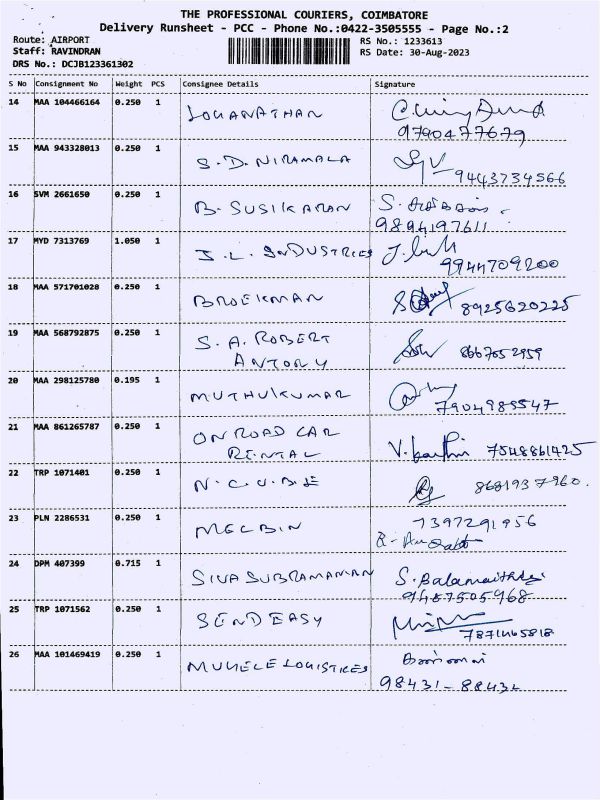 THE PROFESSIONAL COURIERS, COIMBATORE
Delivery Runsheet - PCC - Phone No.:0422-3505555 - Page No.:2
Route: AIRPORT
RS No.: 1233613
Staff: RAVINDRAN
RS Date: 30-Aug-2023
DRS No.: DCJB123361302
S No Consignment No Weight PCS Consignee Details Signature
14 MAA 104466164 0.250 1 LOGANATHAN
9790477679
15 MAA 943328013 0.250 1 S. D. NIRAMALA
9443734566
16 SVM 2661650 0.250 1 B. SUSIKARAN
9894197611
17 MYD 7313769 1.050 1 J. L. INDUSTRIES
9944709200
18 MAA 571701028 0.250 1 BROEKMAN 8925620225
19 MAA 568792875 0.250 1 S. A. ROBERT
ANTONY 8667052959
20 MAA 298125780 0.195 1 MUTHUKUMAR
7904985547
21 MAA 861265787 0.250 1 ON ROAD CAR
RENTAL V. Karthi 7548861425
22 TRP 1071401 0.250 1 N. C. U. B. 8681937960.
23 PLN 2286531 0.250 1 MELBIN 7397291956
24 DPM 407399 0.715 1 SIVA SUBRAMANIAN S. Balamaithili
9487505968
25 TRP 1071562 0.250 1 SEND EASY
7871465818
26 MAA 101469419 0.250 1 LOGISTICS
98431-88432